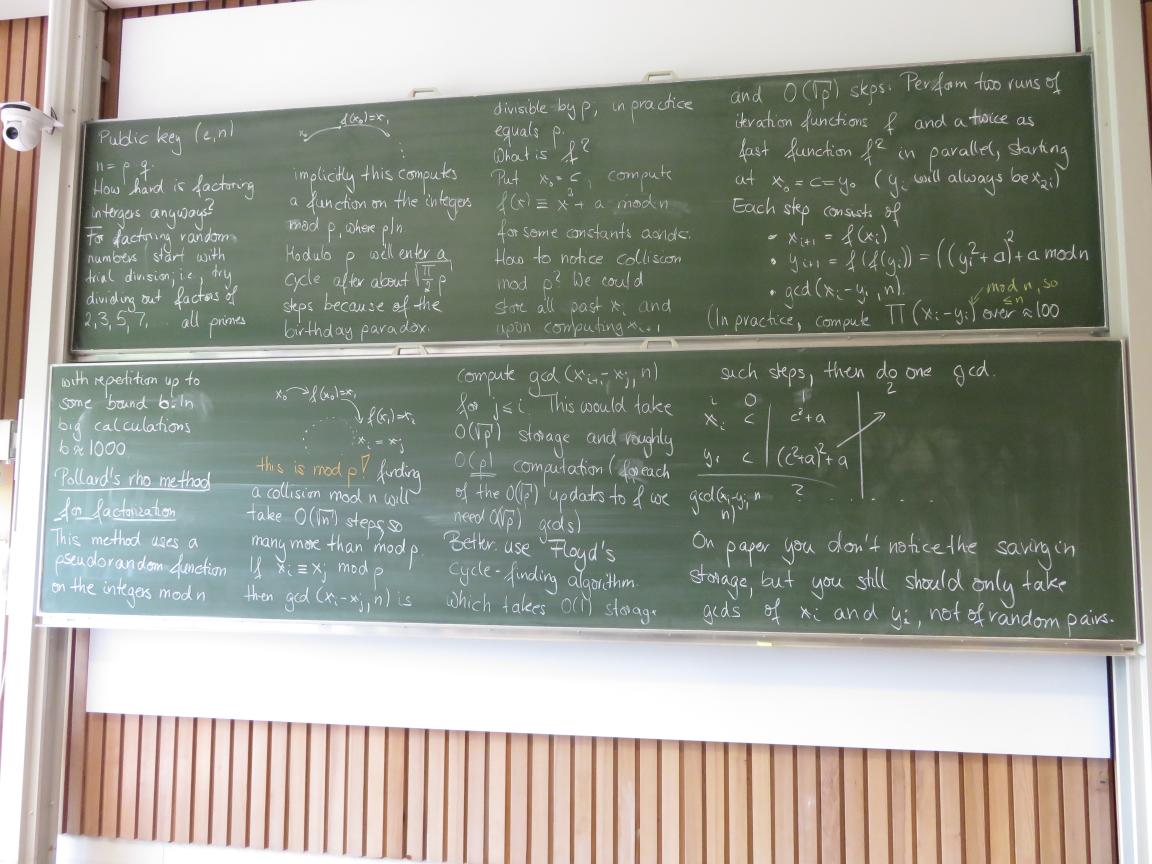 Public key (e,n)
n = p·q.
How hard is factoring
intergers anyways?
For factoring random
numbers start with
trial division; i.e., try
dividing out factors of
2, 3, 5, 7, ... all primes
with repetition up to
some bound b. In
big calculations
b ≈ 1000
Pollard's rho method
for factorization
This method uses a
pseudorandom function
on the integers mod n
x₀ f(x₀)=x₁
implicitly this computes
a function on the integers
mod p, where p|n.
Modulo p we'll enter a
cycle after about √(π/2 p)
steps because of the
birthday paradox.
x₀ f(x₀)=x₁
f(x₁)=x₂
x_i = x_j
this is mod p! finding
a collision mod n will
take O(√n) steps, so
many more than mod p.
If x_i ≡ x_j mod p
then gcd(x_i-x_j, n) is
divisible by p, in practice
equals p.
What is f?
Put x₀ = c, compute
for some constants a and c.
How to notice collision
mod p? We could
store all past x_i and
upon computing x_{i+1}
compute gcd(x_{i+1}-x_j, n)
for j ≤ i. This would take
O(√p) storage and roughly
O(p) computation (for each
of the O(√p) updates to f we
need O(√p) gcds)
Better: use Floyd's
cycle-finding algorithm.
which takes O(1) storage
and O(√p) steps. Perform two runs of
iteration functions f and a twice as
fast function f² in parallel, starting
at x₀ = c = y₀ (y_i will always be x_{2i})
Each step consists of
• x_{i+1} = f(x_i)
• y_{i+1} = f(f(y_i)) = ((y_i²+a)²+a mod n
• gcd(x_i-y_i, n).
mod n, so
≤ n
(In practice, compute Π(x_i-y_i) over ≈100
such steps, then do one gcd.
i 0 1 2
x_i c c²+a
y_i c (c²+a)²+a
gcd(x_i-y_i, n) ? . . . . . .
On paper you don't notice the saving in
storage, but you still should only take
gcds of x_i and y_i, not of random pairs.